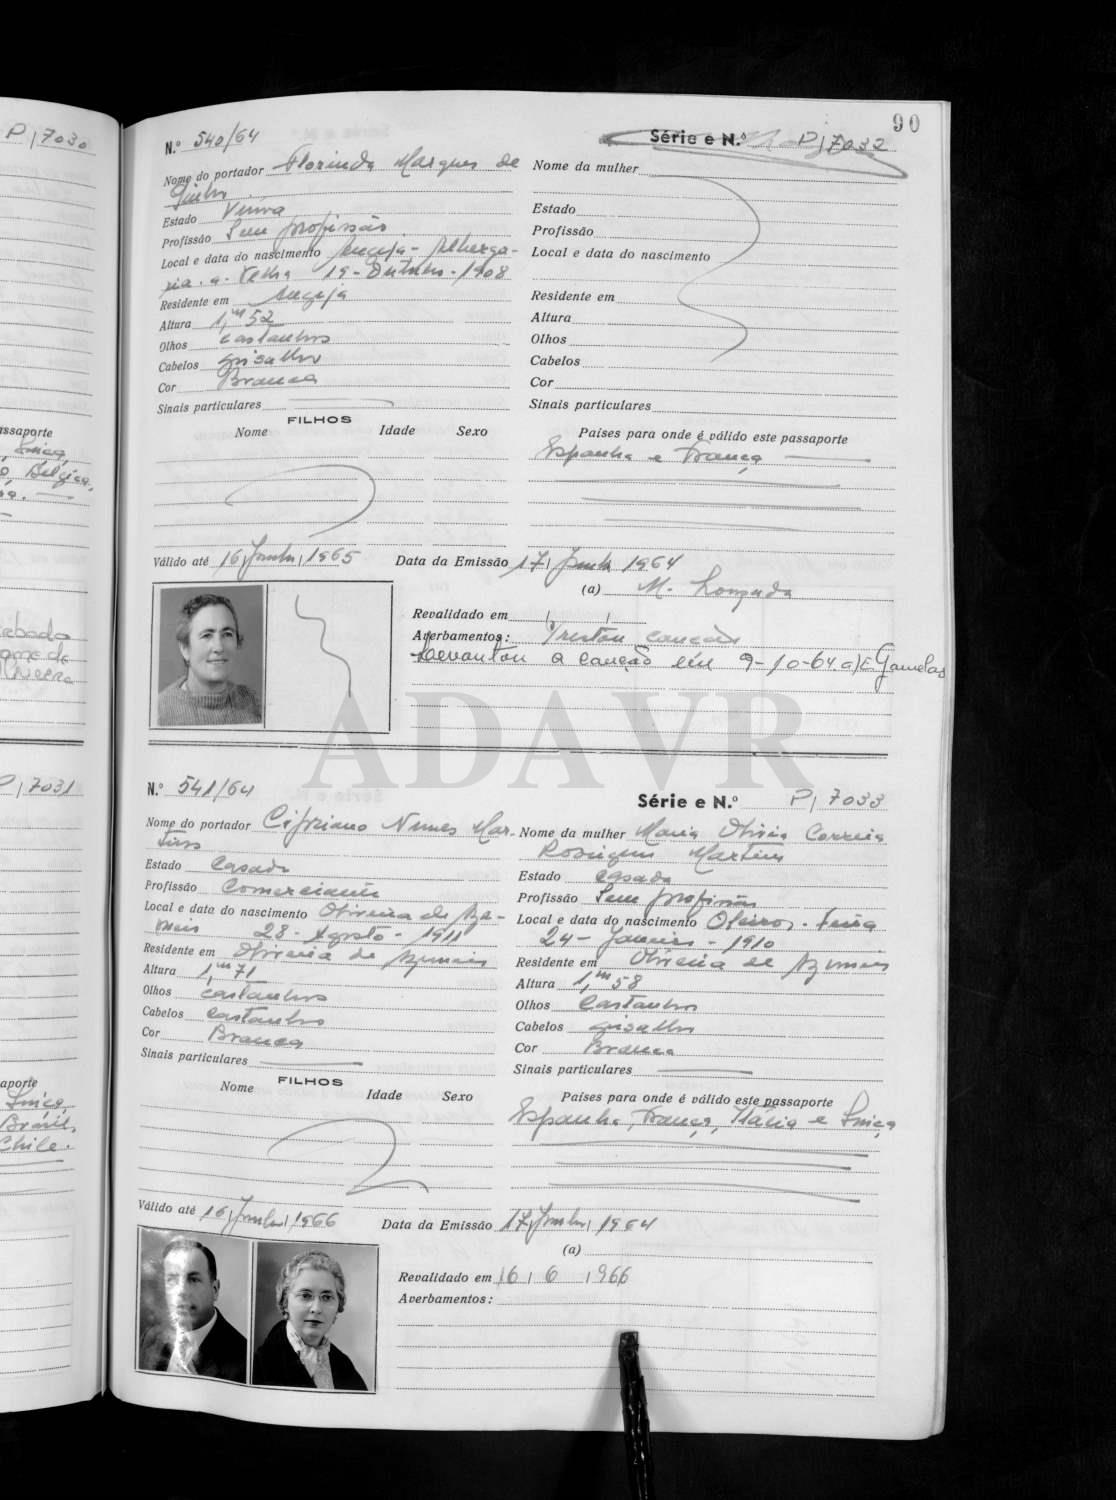 P | 7030
assaporte
Suiça,
Belgica,
P | 7031
aporte
Suiça,
Brasil,
Chile.
90
N.º 540/64
Série e N.º P | 7032
Nome do portador Florinda Marques de
Pinho
Estado Viuva
Profissão Sem profissão
Local e data do nascimento Angeja - Alberga-
ria-a-Velha 19 - Outubro - 1908
Residente em Angeja
Altura 1,m52
Olhos castanhos
Cabelos grisalho
Cor Branca
Sinais particulares
Nome da mulher
Estado
Profissão
Local e data do nascimento
Residente em
Altura
Olhos
Cabelos
Cor
Sinais particulares
FILHOS
Nome Idade Sexo
Países para onde é válido este passaporte
Espanha e França
Válido até 16 | Junho | 1965
Data da Emissão 17 | Junho 1964
(a) M. Louzada
Revalidado em
Averbamentos: Prestou caução
Levantou a caução em 9-10-64 a) E Gamelas
ADAVR
N.º 541/64
Série e N.º P | 7033
Nome do portador Cipriano Nunes Mar-
tins
Estado Casado
Profissão Comerciante
Local e data do nascimento Oliveira de Aze-
meis 28 - Agosto - 1911
Residente em Oliveira de Azemeis
Altura 1,m71
Olhos castanhos
Cabelos castanhos
Cor Branca
Sinais particulares
Nome da mulher Maria Olivia Correia
Martins
Estado casada
Profissão Sem profissão
Local e data do nascimento Oleiros - Feira
24 - Janeiro - 1910
Residente em Oliveira de Azemeis
Altura 1,m58
Olhos Castanhos
Cabelos grisalhos
Cor Branca
Sinais particulares
FILHOS
Nome Idade Sexo
Países para onde é válido este passaporte
Espanha, França, Itália e Suiça
Válido até 16 | Junho | 1966
Data da Emissão 17 | Junho | 1964
(a)
Revalidado em 16 | 6 | 1966
Averbamentos: